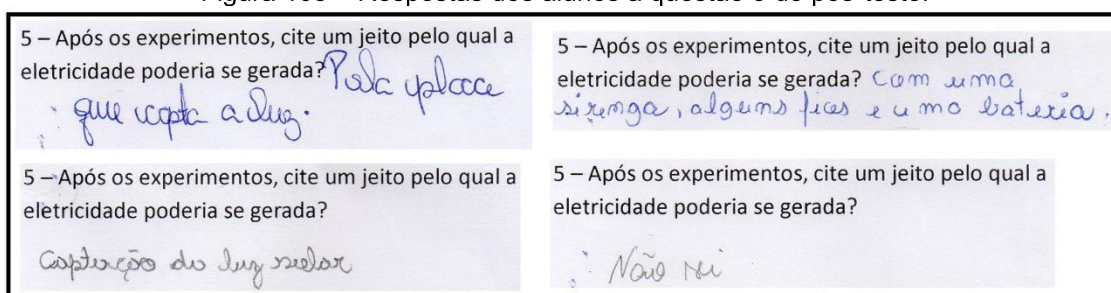 5 – Após os experimentos, cite um jeito pelo qual a
eletricidade poderia se gerada? Pela placa
que capta a luz.
5 – Após os experimentos, cite um jeito pelo qual a
eletricidade poderia se gerada? Com uma
sirenga, alguns fios e uma bateria.
5 – Após os experimentos, cite um jeito pelo qual a
eletricidade poderia se gerada?
Captação do luz solar
5 – Após os experimentos, cite um jeito pelo qual a
eletricidade poderia se gerada?
Não sei